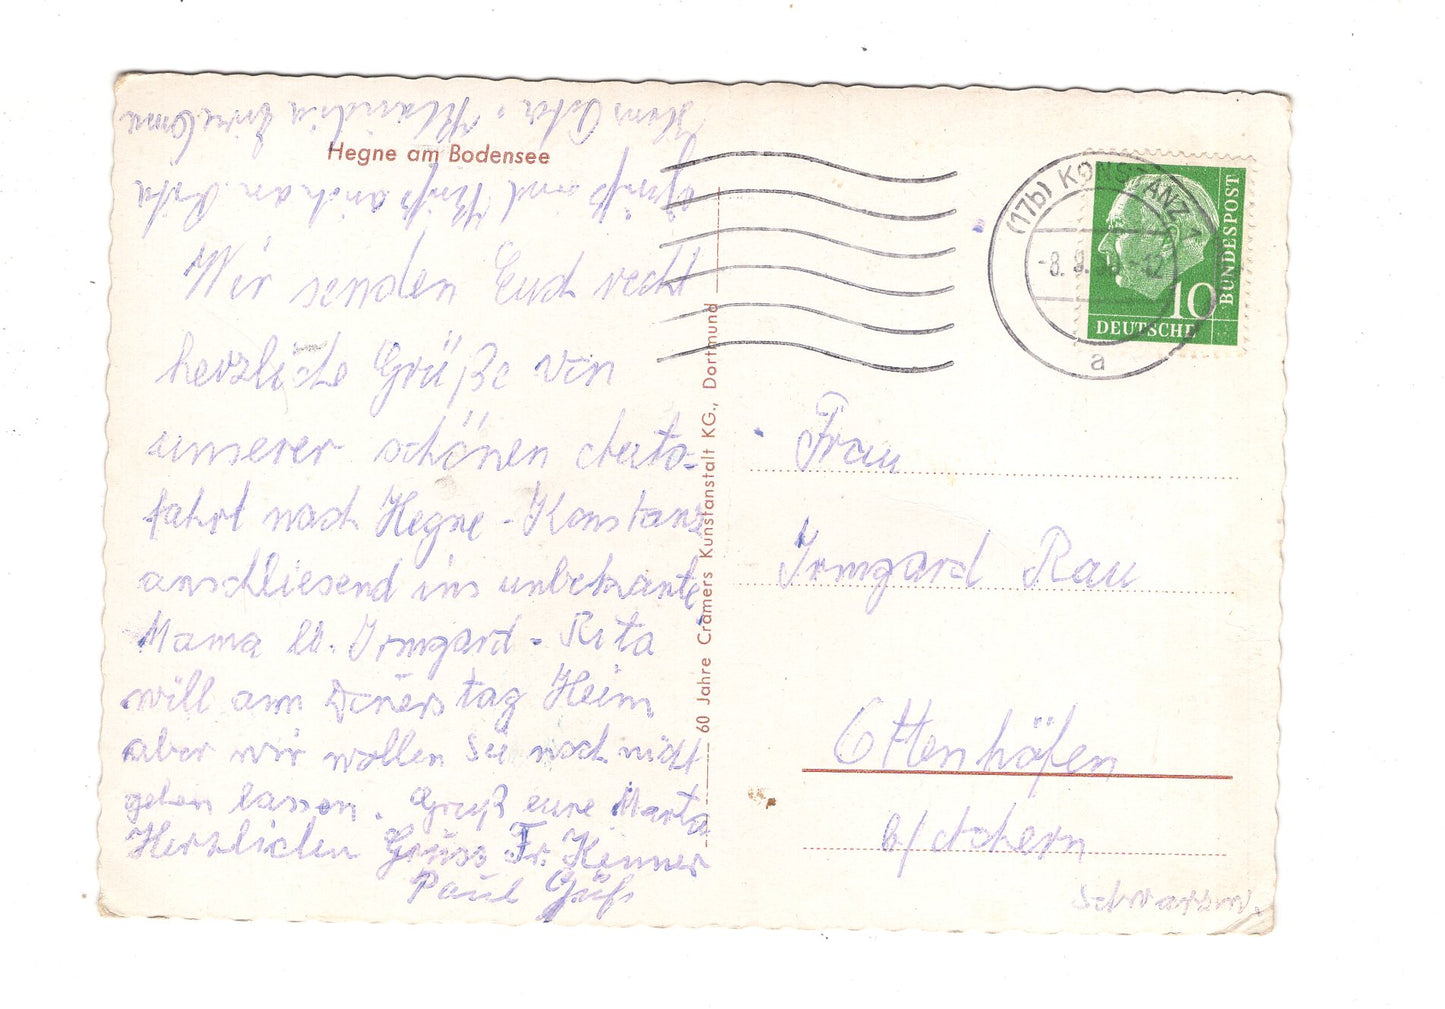 Hegne am Bodensee
Wir senden Euch recht
herzliche Grüße von
unserer schönen Auto-
fahrt nach Hegne - Konstanz
anschliesend ins unbekannte
Mama lb. Irmgard - Rita
will am Dienstag Heim
aber wir wollen Sie noch nicht
gehen lassen. Gruß eure Marta
Herzlichen Gruss Fr. Kenner
Paul
Gruß und Kuß auch an
60 Jahre Cramers Kunstanstalt KG., Dortmund
(17b) KONSTANZ 1
a
BUNDESPOST
10
DEUTSCHE
Frau
Irmgard Rau
Ottenhöfen
b/ Achern
Schwarzw.